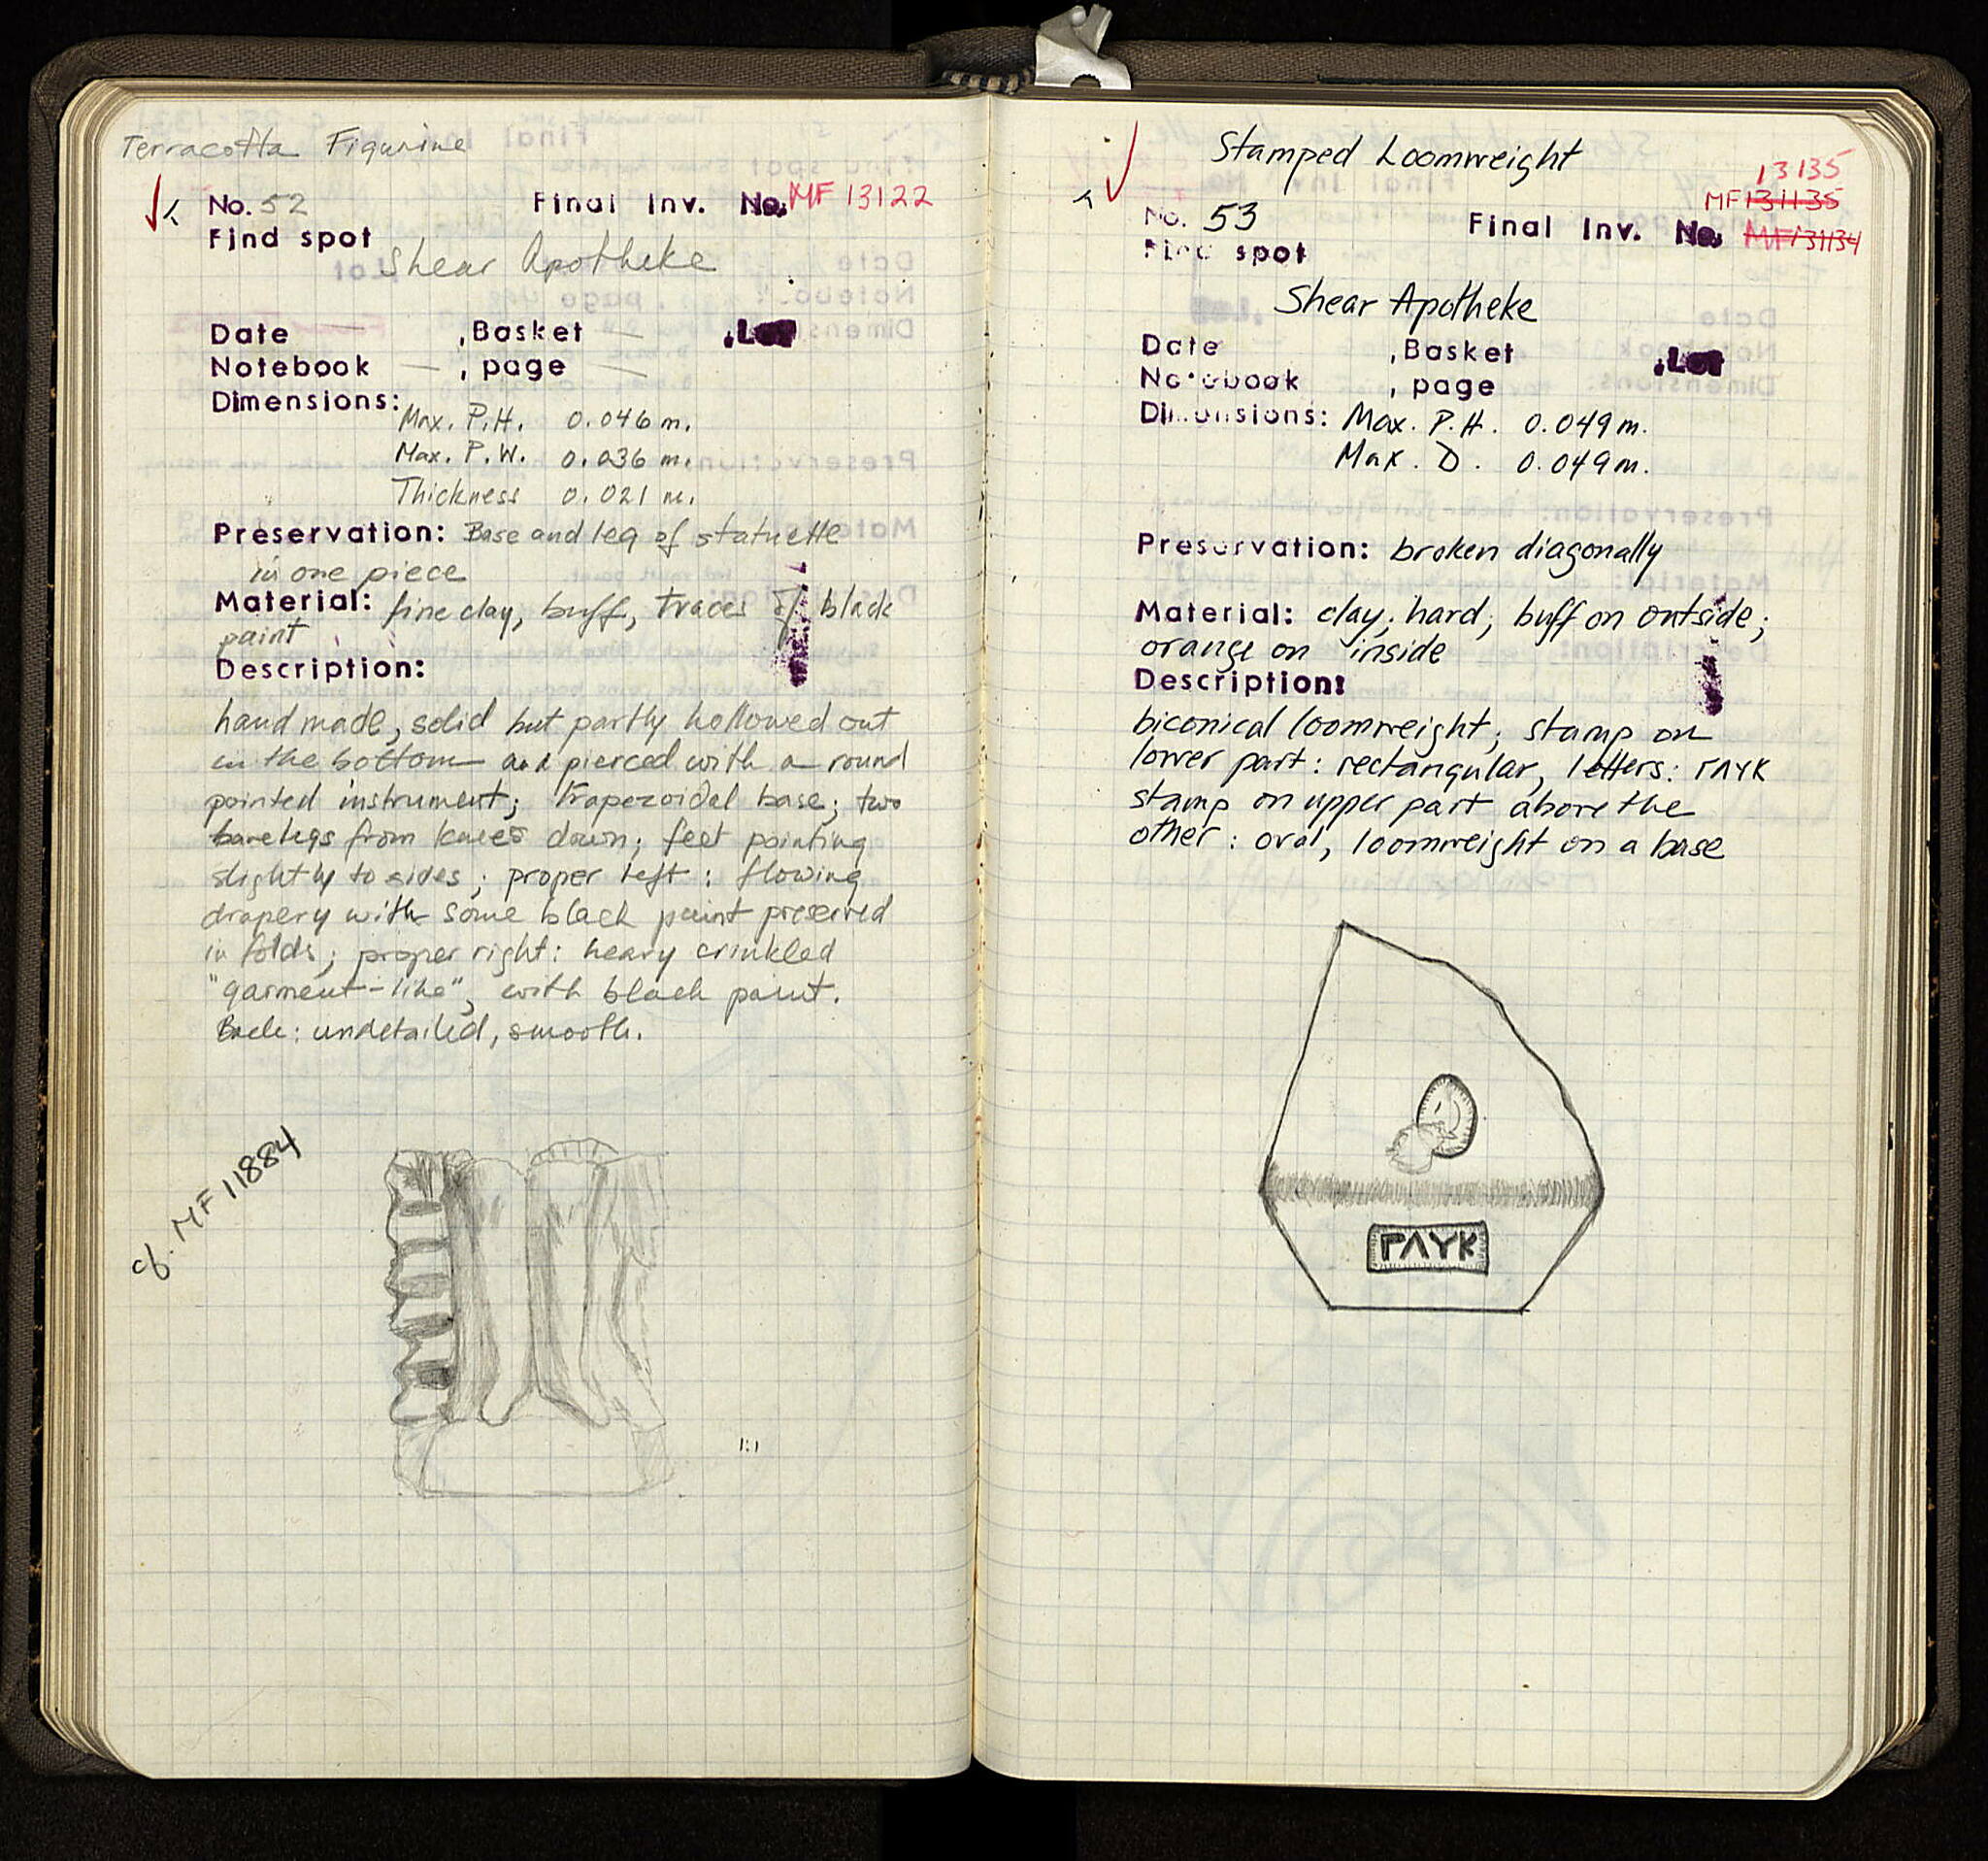 Terracotta Figurine
No. 52 Final Inv. No. MF 13122
Find spot
Shear Apotheke
Date — , Basket — , Lot
Notebook — , page —
Dimensions: Max. P.H. 0.046 m.
Max. P.W. 0.036 m.
Thickness 0.021 m.
Preservation: Base and leg of statuette
in one piece
Material: fine clay, buff, traces of black
paint
Description:
hand made, solid but partly hollowed out
in the bottom and pierced with a round
pointed instrument; trapezoidal base; two
bare legs from knees down; feet pointing
slightly to sides; proper left: flowing
drapery with some black paint preserved
in folds; proper right: heavy crinkled
"garment-like", with black paint.
Back: undetailed, smooth.
cf. MF 11884
Stamped Loomweight
13135
MF 131135
No. 53 Final Inv. No. MF 131134
Find spot
Shear Apotheke
Date , Basket , Lot
Notebook , page
Dimensions: Max. P.H. 0.049 m.
Max. D. 0.049 m.
Preservation: broken diagonally
Material: clay; hard; buff on outside;
orange on inside
Description:
biconical loomweight; stamp on
lower part: rectangular, letters: ΓΛΥΚ
stamp on upper part above the
other: oval, loomweight on a base
ΓΛΥΚ